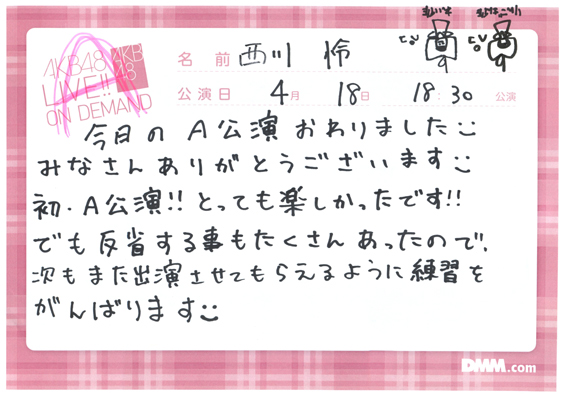 AKB48
LIVE!!
ON DEMAND
AKB
48
名前 西川 怜
公演日 4月 18日 18:30 公演
今日の A公演 おわりました
みなさんありがとうございます
初・A公演!! とっても楽しかったです!!
でも反省する事もたくさんあったので、
次もまた出演させてもらえるように練習を
がんばります
DMM.com